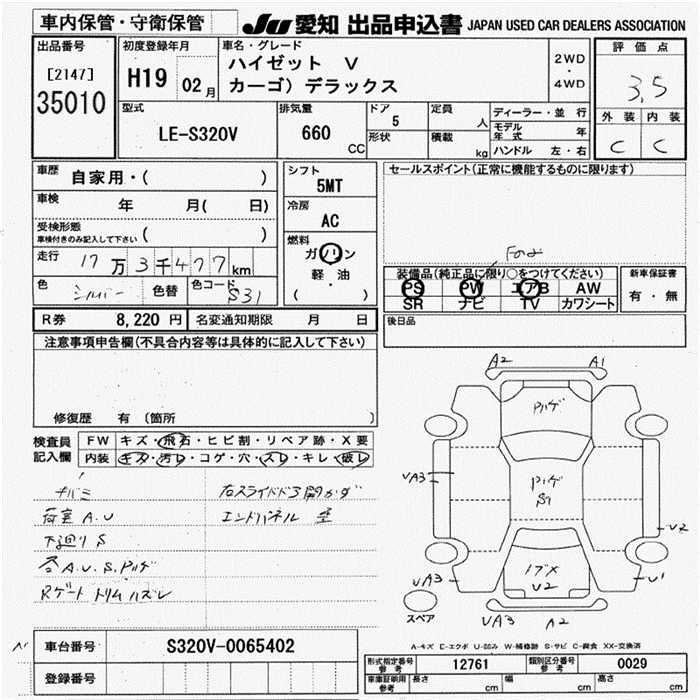 車内保管・守衛保管
JU 愛知 出品申込書 JAPAN USED CAR DEALERS ASSOCIATION
出品番号
[2147]
35010
初度登録年月
H19 02月
車名・グレード
ハイゼット V
カーゴ) デラックス
2WD
・
4WD
評価点
3.5
外装 内装
C C
型式
LE-S320V
排気量
660
CC
ドア
5
形状
定員
人
積載
kg
ディーラー・並行
モデル年式 年
ハンドル 左・右
車歴 自家用・( )
車検 年 月( 日)
受検形態
車検付きのみ記入して下さい ( )
走行 17万3千477km
色 シルバー 色替 色コード S31
シフト
5MT
冷房
AC
燃料
ガソリン
軽・油
( )
セールスポイント(正常に機能するものに限ります)
装備品(純正品に限り○をつけてください)
PS PW エアB AW
SR ナビ TV カワシート
新車保証書
有・無
R券 8,220 円 名変通知期限 月 日
後日品
注意事項申告欄(不具合内容等は具体的に記入して下さい)
修復歴 有 (箇所 )
検査員
記入欄
FW キズ・飛石・ヒビ割・リペア跡・X要
内装 キズ・汚レ・コゲ・穴・スレ・キレ・破レ
荷室 A.U
下廻り S
各A.U.S.ハゲ
Rゲート トリムハズレ
エンドパネル
A2 A1
ハゲ
UA3
ハゲ
S1
U2
UA3
U2
U1
スペア
UA3 A2
A-キズ E-エクボ U-凹み W-補修跡 S-サビ C-腐食 XX-交換済
車台番号 S320V-0065402
登録番号
形式指定番号
参考
12761
類別区分番号
参考
0029
車庫証明用
参考
長さ cm 幅 cm 高さ cm